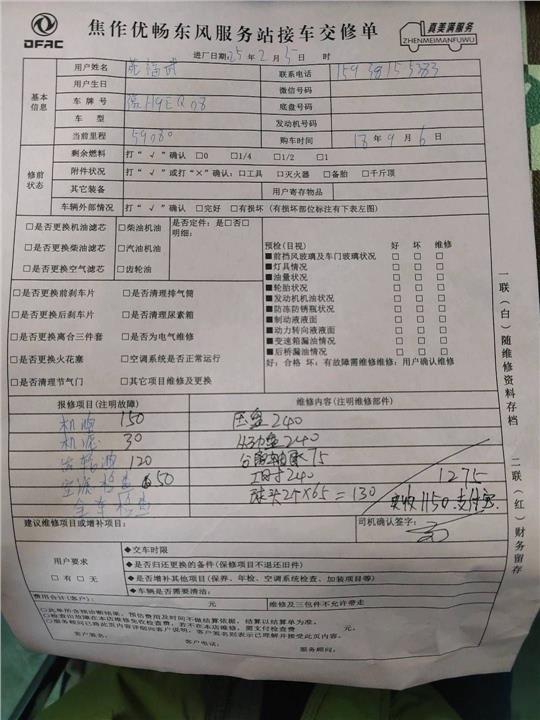 DFAC
焦作优畅东风服务站接车交修单
真美满服务
ZHENMEIMANFUWU
进厂日期: 25年 2月 5日 时
基本信息
用户姓名 联系电话
用户生日 微信号码
车牌号 底盘号码
车型 发动机号码
当前里程 59080 购车时间 18年9月6日
修前状态
剩余燃料 打“√”确认 □0 □1/4 □1/2 □1
附件状况 打“√”或打“×”确认: □工具 □灭火器 □备胎 □千斤顶
其它装备 用户寄存物品
车辆外部情况 打“√”确认 □完好 □有损坏 (有损坏部位标注有下表左图)
□是否更换机油滤芯 □柴油机油 是否定件: 是□否□
□是否更换柴油滤芯 □汽油机油 明细:
□是否更换空气滤芯 □齿轮油
□是否更换前刹车片 □是否清理排气筒
□是否更换后刹车片 □是否清理尿素箱
□是否更换离合三件套 □是否为电气维修
□是否更换火花塞 □空调系统是否正常运行
□是否清理节气门 □其它项目维修及更换
预检(目视) 好 坏 维修
■前挡风玻璃及车门玻璃状况 □ □ □
■灯具情况 □ □ □
■油量状况 □ □ □
■轮胎状况 □ □ □
■发动机机油状况 □ □ □
■防冻防锈瓶状况 □ □ □
■制动液液面 □ □ □
■动力转向液液面 □ □ □
■变速箱漏油情况 □ □ □
■后桥漏油情况 □ □ □
好: 合格 坏: 有故障需维修维修: 用户确认维修
报修项目(注明故障) 维修内容(注明维修部件)
机油 150 压盘 240
机滤 30 从动盘 240
齿轮油 120 分离轴承 75
空滤 50 工时 240
全车检查 球头25+65=130 1275
实收1150.支付宝
建议维修项目或增补项目: 司机确认签字:
用户要求
□有 □无
◆交车时限
◆是否归还更换的备件(保修项目不退还旧件)
◆是否增补其他项目(保养、年检、空调系统检查、加装项目等)
◆车辆是否需要清洁:
费用合计(客户): 元 维修及三包件不允许带走
○此单所含预诊断结果, 预估费用及时间不做结算依据, 结算以结算单为准。
○检查出故障在本店维修免收检查费, 若不在本店维修, 需支付检查费 元。
○服务顾问已将此页内容详细向客户说明, 客户签名则表示已理解并接受此页内容。
客户签名: 客户电话: 服务顾问:
一联(白)随维修资料存档
二联(红)财务留存